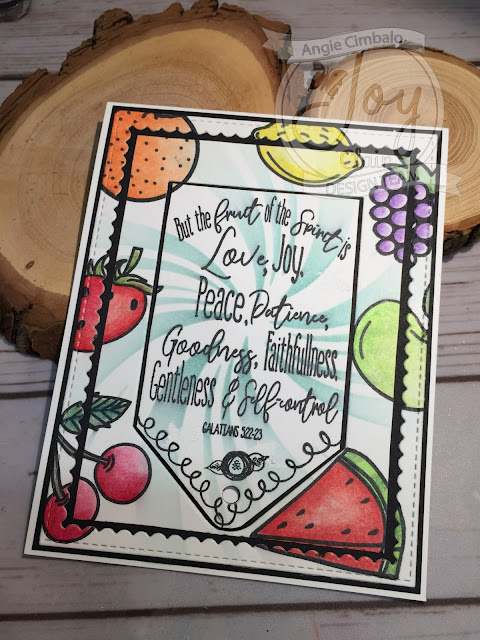 Angie Cimbalo
Joy
DESIGN
But the fruit of the Spirit is
Love, Joy,
Peace, Patience,
Goodness, Faithfullness,
Gentleness & Self-control
GALATIANS 5:22-23